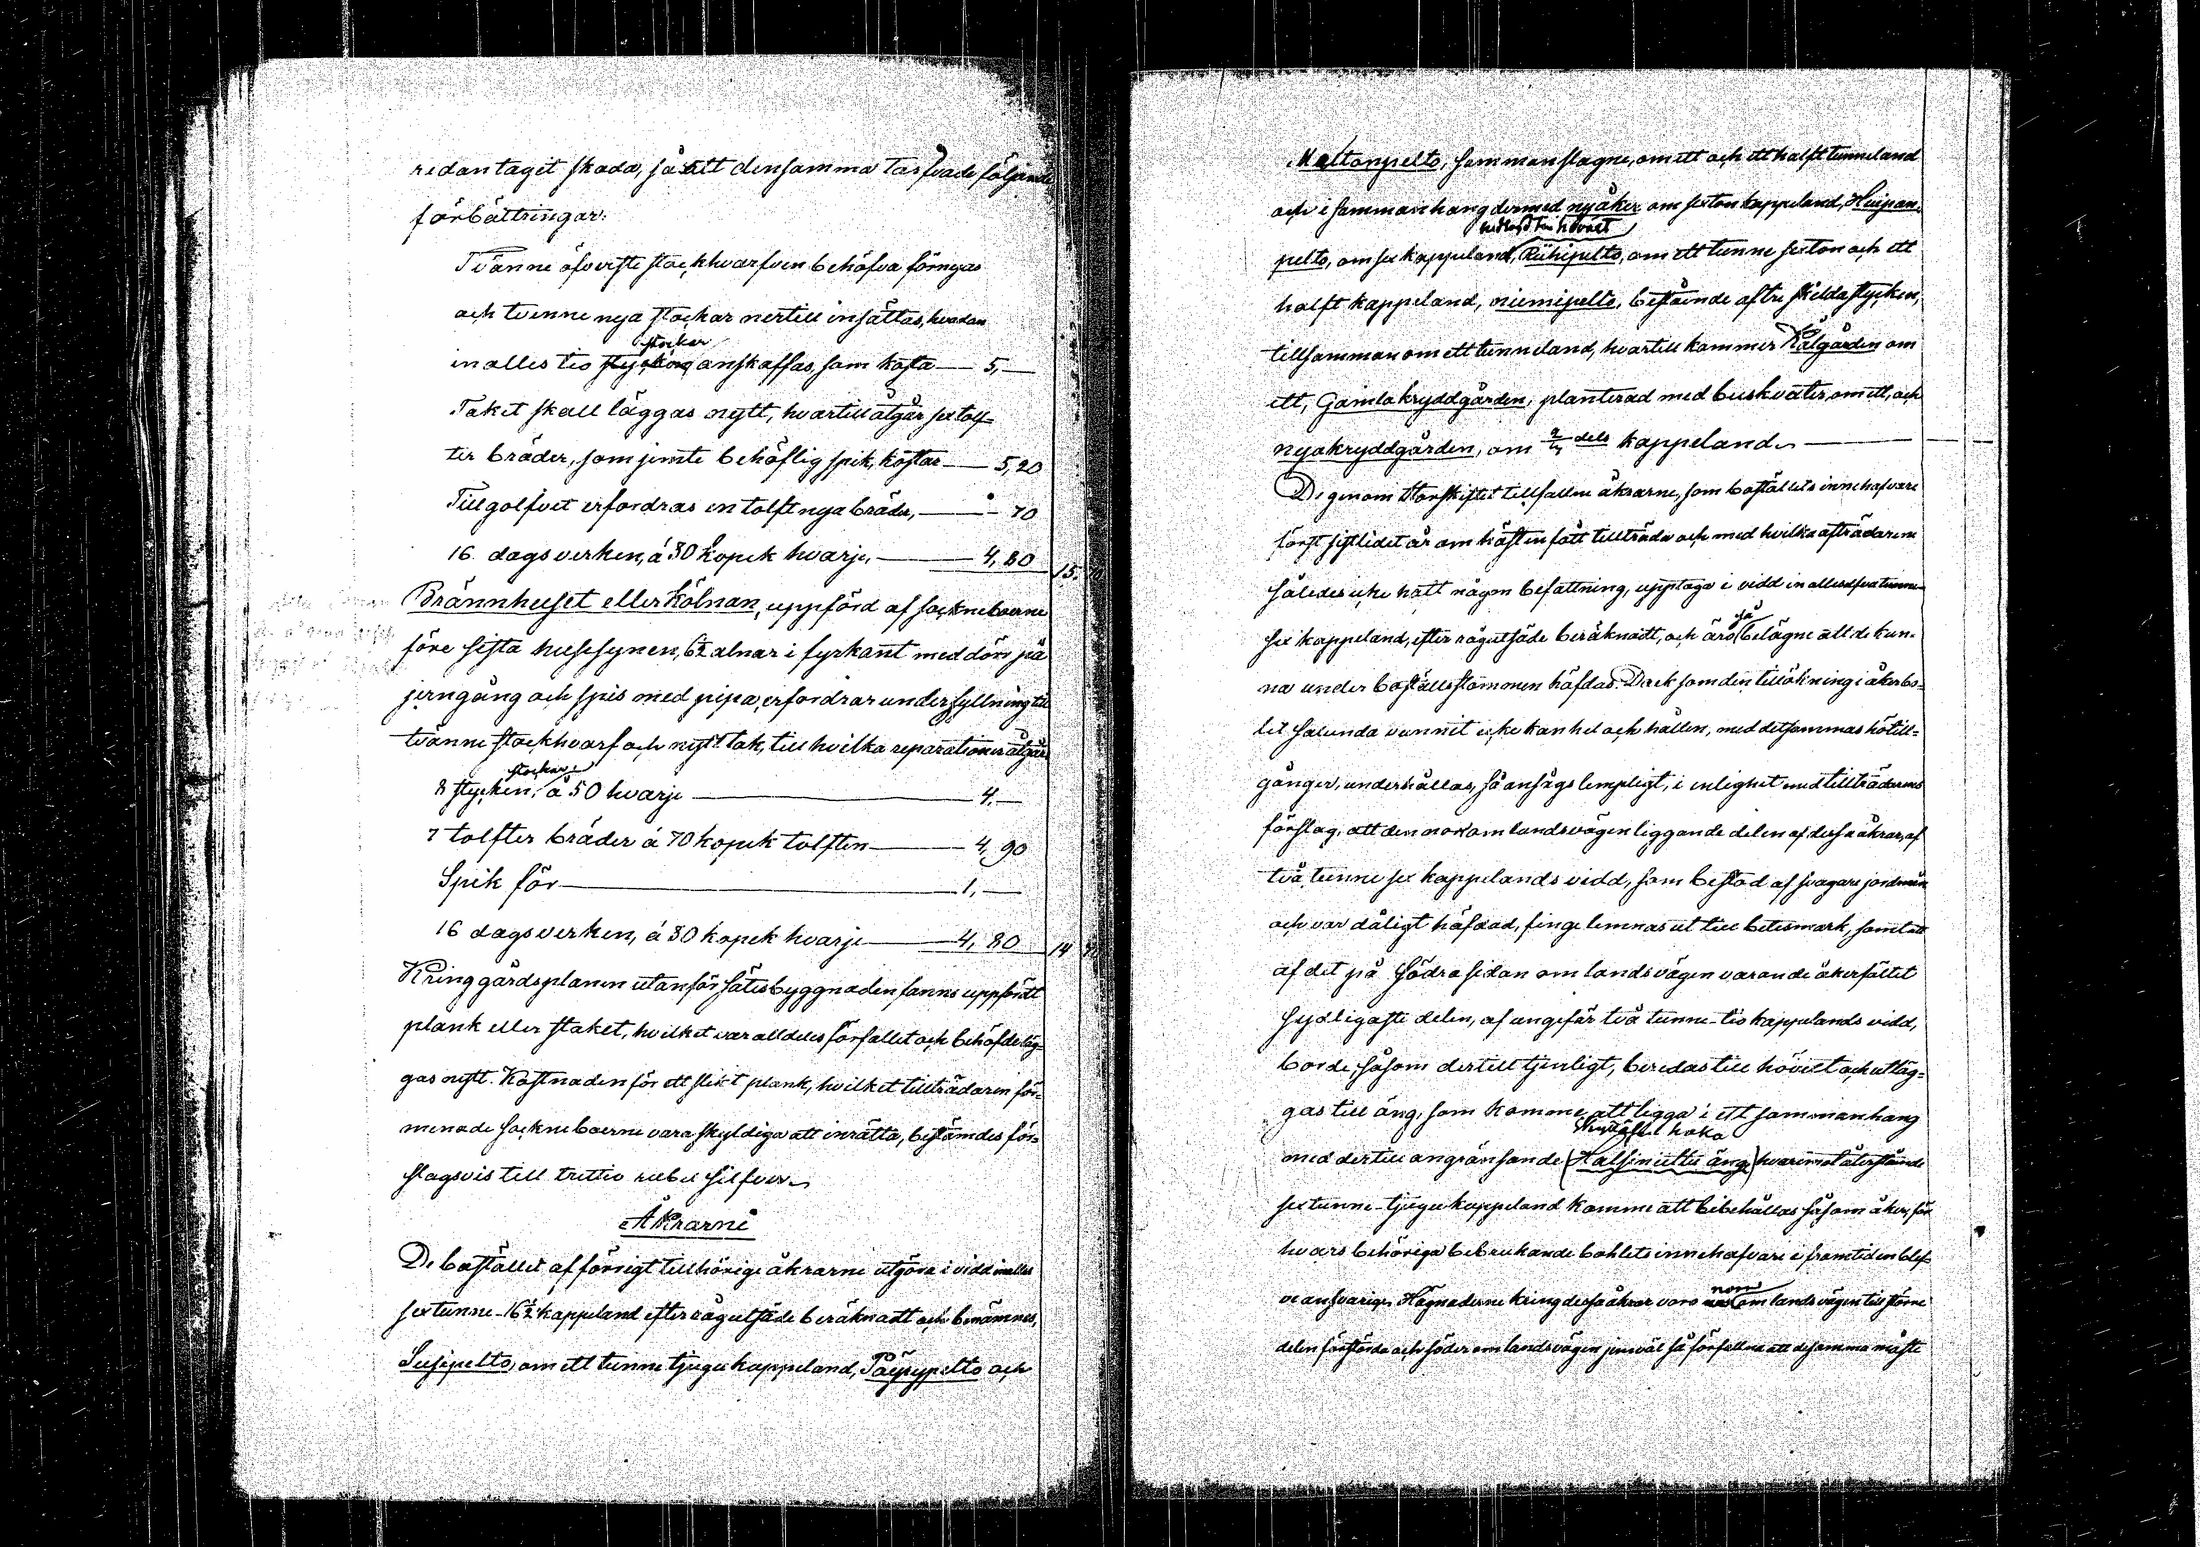 redan taget skada, så att densamma tarfvade följande
förbättringar:
Tvänne öfverste stockhvarfven behöfva förnyas
och tvenne nya stockar nertill insättas, hvadan
stockar
inalles tio stycken anskaffas, som kosta — 5, —
Taket skall läggas nytt, hvartill åtgår sex tolf-
ter bräder, som jemte behöflig spik, kostar — 5, 20
Till golfvet erfordras en tolft nya bräder, — " 70
16 dagsverken, á 30 kopek hvarje, — 4, 80
15. 70
Brännhuset eller Kölnan, uppförd af sockneboerne
före sista husesynen, 6½ alnar i fyrkant med dörr på
jerngång och spis med pipa, erfordrar undersyllning till
tvänne stockhvarf och nytt tak, till hvilka reparationer åtgår
stockar
8 stycken, á 50 hvarje — 4, —
7 tolfter bräder á 70 kopek tolften — 4, 90
Spik för — 1, —
16 dagsverken, á 30 kopek hvarje — 4, 80
14 70
Kring gårdsplanen utanför sätesbyggnaden fanns uppfördt
plank eller staket, hvilket var alldeles förfallet och behöfde läg-
gas nytt. Kostnaden för ett slikt plank, hvilket tillträdaren för-
menade sockneboerne vara skyldiga att inrätta, bestämdes för-
slagsvis till trettio rubel silfver.
Åkrarne
De bostället af förrigt tillhörige åkrarne utgöra i vidd inalles
sex tunne 16½ kappeland efter rågutsäde beräknadt och benämnes,
Susipelto, om ett tunne tjugu kappeland, Pappypelto och
Maltonpelto, sammanslagne, om ett och ett halft tunneland
och i sammanhang dermed nyåker om sexton kappeland, Huipan-
pelto, om sex kappeland, Riihipelto, om ett tunne sexton och ett
halft kappeland, niemipelto, bestående af tre skilda stycken,
tillsamman om ett tunneland, hvartill kommer Kålgården om
ett, Gamla kryddgården, planterad med buskväter, om ett, och
nya kryddgården, om dels kappeland. —
De genom Storskiftet tillfallne åkrarne, som boställets innehafvare
först sistlidet år om hösten fått tillträda och med hvilka afträdaren
således icke haft någon befattning, upptaga i vidd inalles elfva tunne
så
sex kappeland, efter rågutsäde beräknadt, och äro belägne att de kun-
na under boställsstommen häfdas. Dock som den tillökning i åkerbo-
let sålunda vunnit icke kan hel och hållen, med detsammas hötill-
gångar, underhållas, så ansågs lempligt, i enlighet med tillträdarens
förslag, att den norr om landsvägen liggande delen af dessa åkrar, af
två tunne sex kappelands vidd, som bestod af svagare jordmån
och var dåligt häfdad, finge lemnas ut till betesmark, samt att
af det på södra sidan om landsvägen varande åkerfältet
sydligaste delen, af ungefär två tunne tio kappelands vidd,
borde, såsom dertill tjenligt, beredas till hövext och utläg-
gas till äng, som komme att ligga i ett sammanhang
haka
med dertill angränsande (Halsiniittu äng) hvaremot återstående
sex tunne tjugu kappeland komme att bibehållas såsom åker, för
hvars behöriga bebrukande bohlets innehafvare i framtiden blef-
norr
ve ansvarige. Hägnaderne kring dessa åkrar voro om landsvägen till större
delen förstörda och söder om landsvägen jemväl så förfallne att desamma måste